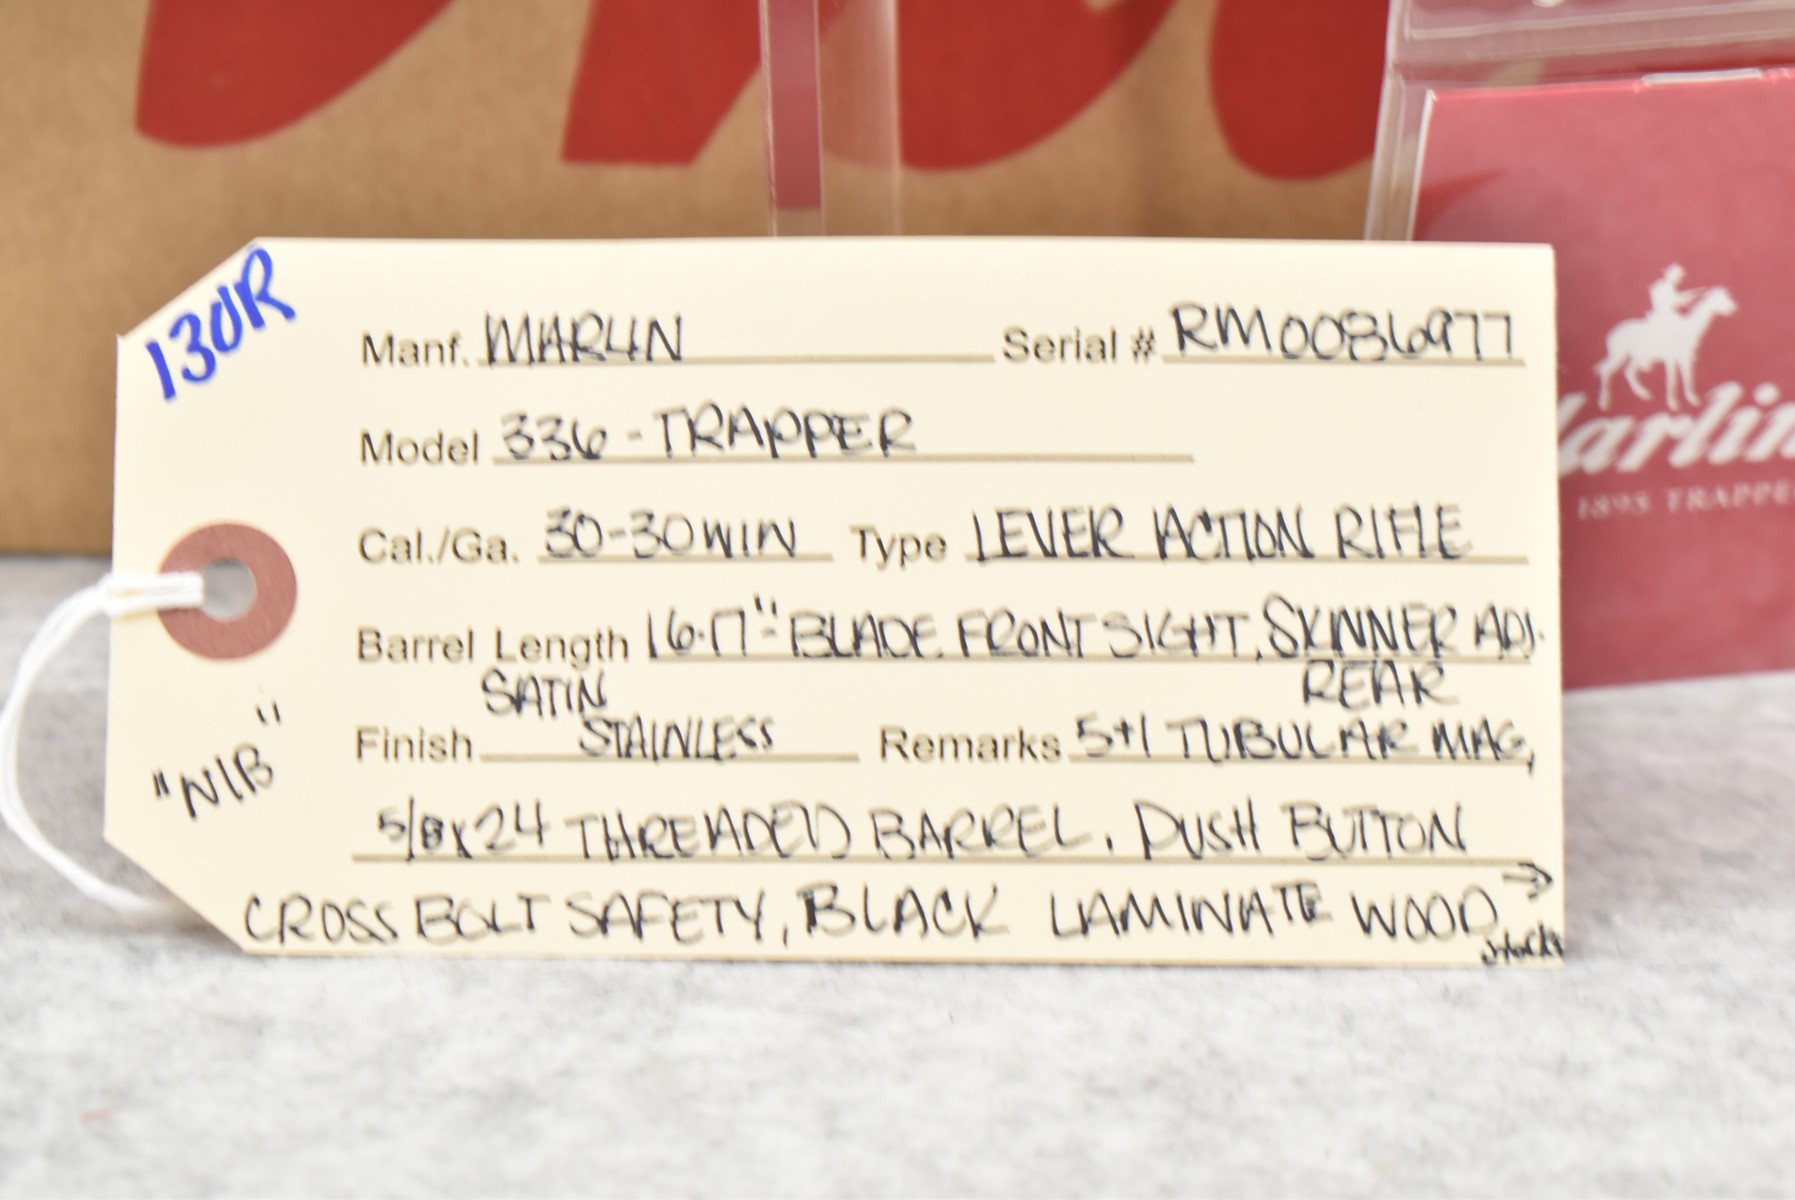 130R
Manf. MARLIN Serial # RM0086977
Model 336-TRAPPER
Cal./Ga. 30-30 WIN Type LEVER ACTION RIFLE
Barrel Length 16.17" BLADE FRONT SIGHT, SKINNER ADJ.
REAR
Finish SATIN STAINLESS Remarks 5+1 TUBULAR MAG,
5/8x24 THREADED BARREL, PUSH BUTTON
CROSS BOLT SAFETY, BLACK LAMINATE WOOD →
stocks
"NIB"
Marlin
1895 TRAPPER